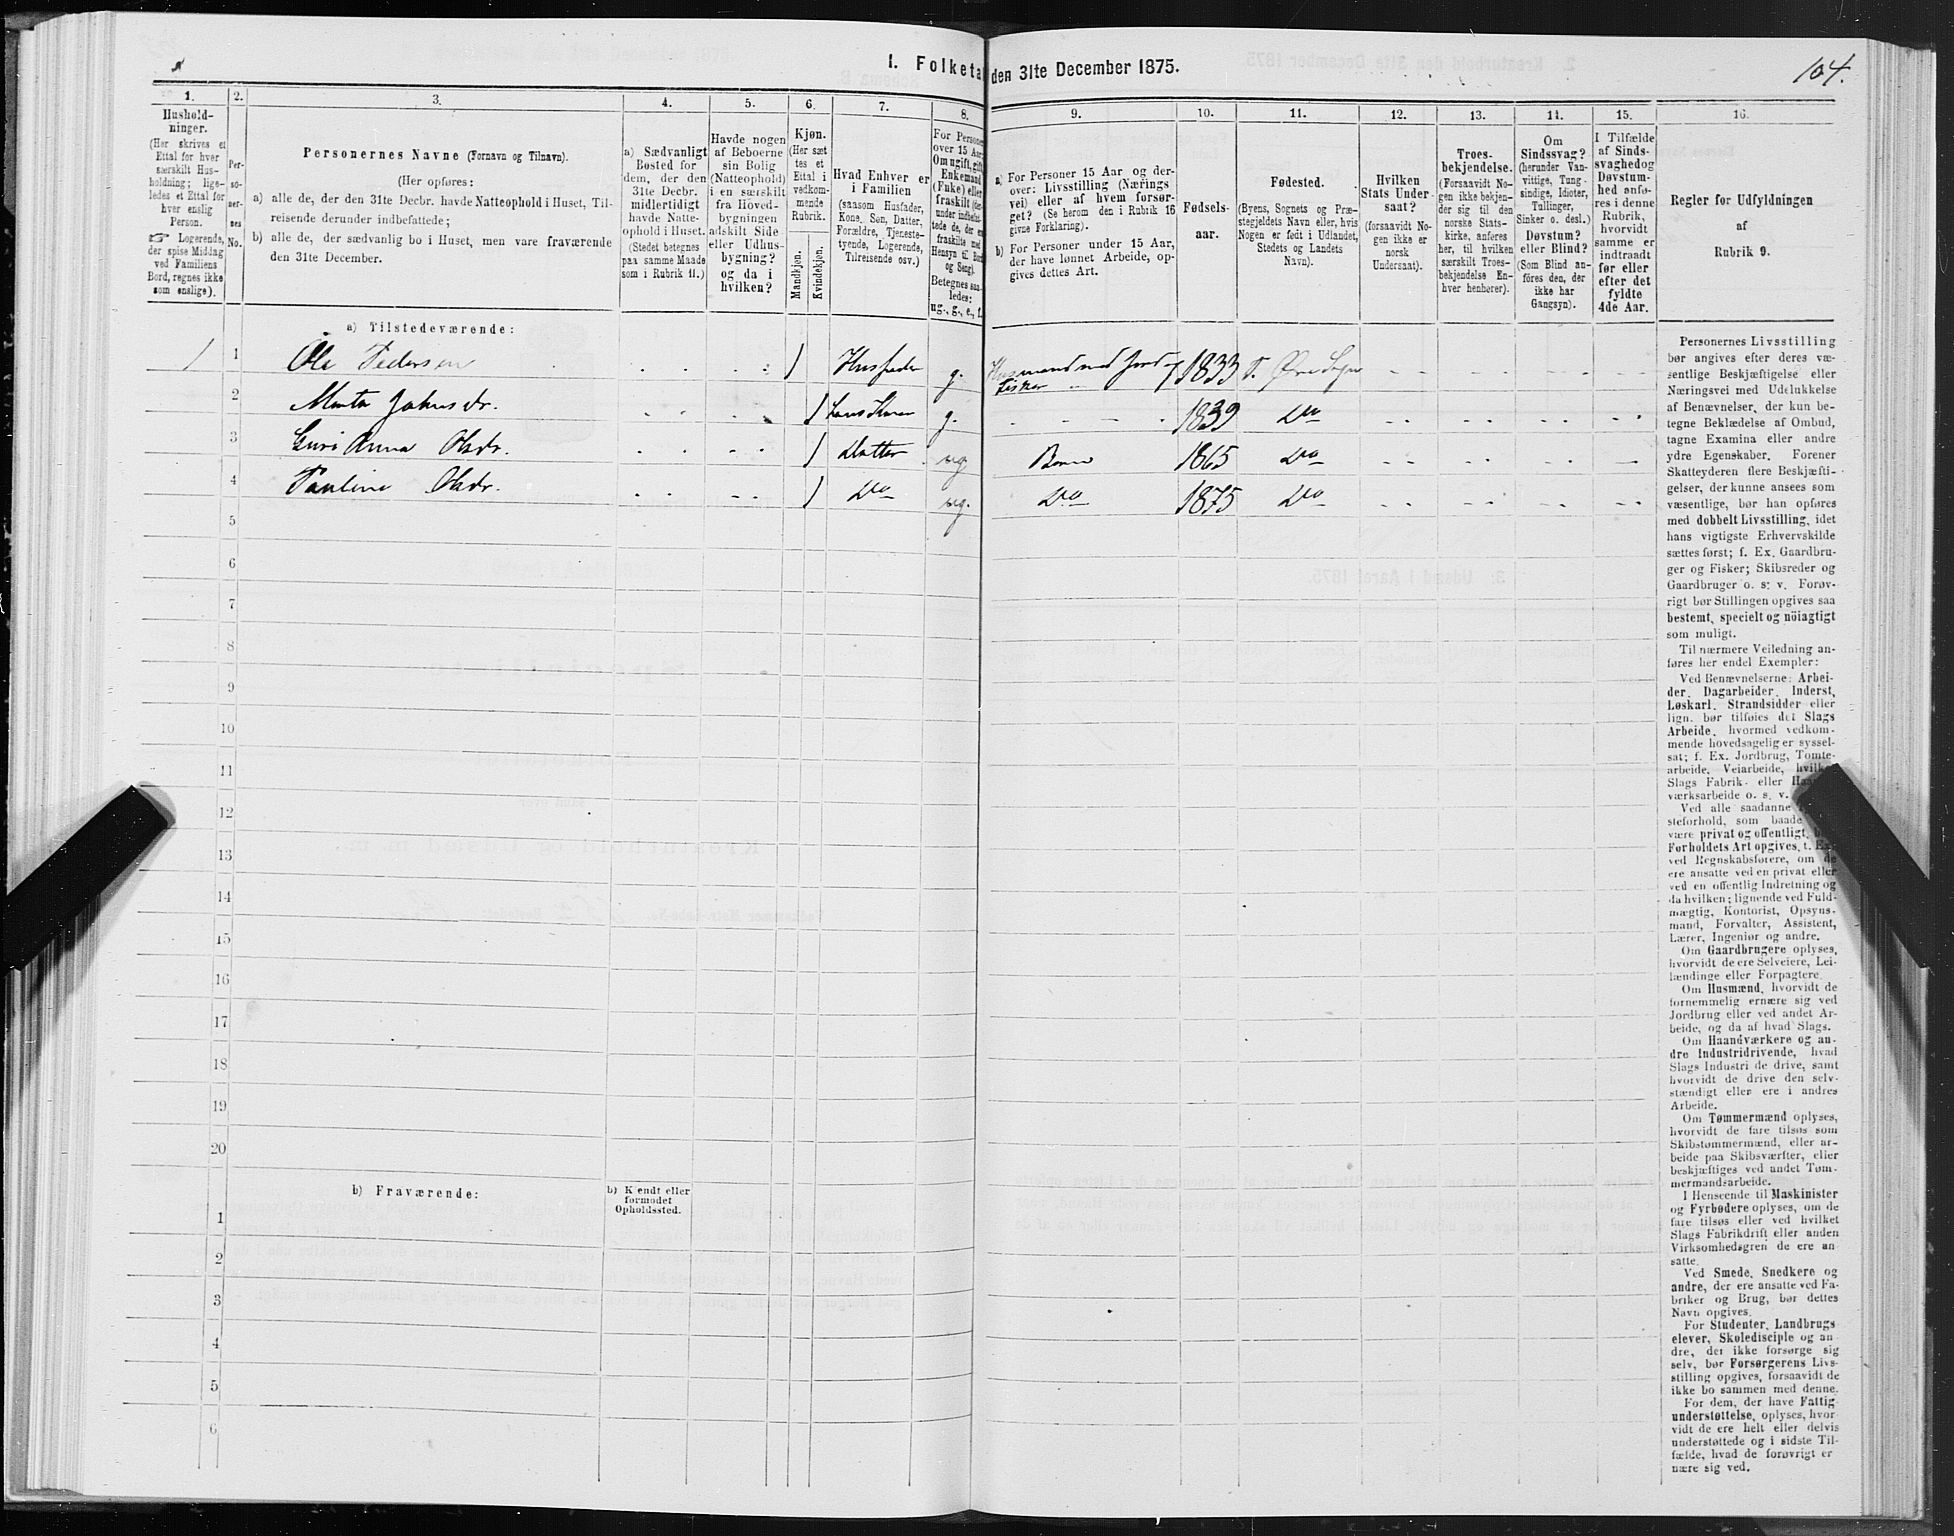 104.
1. Folketal den 31te December 1875.
1.
2.
3.
4.
5.
6.
7.
8.
9.
10.
11.
12.
13.
14.
15.
16.
Hushold-
ninger.
(Her skrives et
Ettal for hver
særskilt Hus-
holdning; lige-
ledes et Ettal for
hver enslig
Person.
☞ Logerende,
der spise Middag
ved Familiens
Bord, regnes ikke
som enslige).
Per-
so-
ner-
nes
No.
Personernes Navne (Fornavn og Tilnavn).
(Her opføres:
a) alle de, der den 31te Decbr. havde Natteophold i Huset, Til-
reisende derunder indbefattede;
b) alle de, der sædvanlig bo i Huset, men vare fraværende
den 31te December.
a) Sædvanligt
Bosted for
dem, der den
31te Decbr.
midlertidigt
havde Natte-
ophold i Huset.
(Stedet betegnes
paa samme Maade
som i Rubrik 11.)
Havde nogen
af Beboerne
sin Bolig
(Natteophold)
i en særskilt
fra Hoved-
bygningen
adskilt Side-
eller Udhus-
bygning?
og da i
hvilken?
Kjøn.
(Her sæt
tes et
Ettal i
vedkom-
mende
Rubrik.
Mandkjøn.
Kvindekjøn.
Hvad Enhver er
i Familien
(saasom Husfader,
Kone, Søn, Datter,
Forældre, Tjeneste-
tyende, Logerende,
Tilreisende osv.)
For Personer
over 15 Aar:
Om ugift, gift,
Enkemand
(Enke) eller
fraskilt (der-
under indbefat-
tede de, der ere
fraskilte med
Hensyn til Bord
og Seng).
Betegnes saa-
ledes:
ug., g., e., f.
a) For Personer 15 Aar og der-
over: Livsstilling (Nærings
vei) eller af hvem forsør-
get? (Se herom den i Rubrik 16
givne Forklaring).
b) For Personer under 15 Aar,
der have lønnet Arbeide, op-
gives dettes Art.
Fødsels-
aar.
Fødested.
(Byens, Sognets og Præ-
stegjeldets Navn eller, hvis
Nogen er født i Udlandet,
Stedets og Landets
Navn).
Hvilken
Stats Under-
saat?
(forsaavidt No-
gen ikke er
norsk
Undersaat).
Troes-
bekjendelse.
(Forsaavidt No-
gen ikke bekjen-
der sig til den
norske Stats-
kirke, anføres
her, til hvilken
særskilt Troes-
bekjendelse En-
hver henhører).
Om
Sindssvag?
(herunder Van-
vittige, Tung-
sindige, Idioter,
Tullinger,
Sinker o. desl.)
Døvstum?
eller Blind?
(Som Blind an-
føres den, der
ikke har
Gangsyn).
I Tilfælde
af Sinds-
svaghed og
Døvstum-
hed anfø-
res i denne
Rubrik,
hvorvidt
samme er
indtraadt
før eller
efter det
fyldte
4de Aar.
Regler for Udfyldningen
af
Rubrik 9.
a) Tilstedeværende:
1 1 Ole Pedersen 1 Husfader g. Husmand med Jord Fisker 1833 Øre Sogn
2 Marta Johnsdr. 1 Husmoer g. 1839 Do
3 Guri Anna Olsdr. 1 Datter ug. Barn 1865 Do
4 Pauline Olsdr. 1 Do ug. Do 1875 Do
5
6
7
8
9
10
11
12
13
14
15
16
17
18
19
20
b) Fraværende:
b) Kjendt eller
formodet
Opholdssted.
1
2
3
4
5
6
Personernes Livsstilling
bør angives efter deres væ-
sentlige Beskjæftigelse eller
Næringsvei med Udelukkelse
af Benævnelser, der kun be-
tegne Beklædelse af Ombud,
tagne Examina eller andre
ydre Egenskaber. Forener
Skatteyderen flere Beskjæfti-
gelser, der kunne ansees som
væsentlige, bør han opføres
med dobbelt Livsstilling, idet
hans vigtigste Erhvervskilde
sættes først; f. Ex. Gaardbru-
ger og Fisker; Skibsreder og
Gaardbruger o. s. v. Forøv-
rigt bør Stillingen opgives saa
bestemt, specielt og nöiagtigt
som muligt.
Til nærmere Veiledning an-
føres her endel Exempler:
Ved Benævnelserne: Arbei-
der, Dagarbeider, Inderst,
Løskarl, Strandsidder eller
lign. bør tilføies det Slags
Arbeide, hvormed vedkom-
mende hovedsagelig er syssel-
sat; f. Ex. Jordbrug, Tomte-
arbeide, Veiarbeide, hvilket
Slags Fabrik- eller Haand-
værksarbeide o. s. v.
Ved alle saadanne
steforhold, som baade
være privat og offentligt, bør
Forholdets Art opgives, f. Ex.
ved Regnskabsførere, om de
ere ansatte ved en privat eller
ved en offentlig Indretning og
da hvilken; lignende ved Fuld-
mægtig, Kontorist, Opsyns-
mand, Forvalter, Assistent,
Lærer, Ingeniør og andre.
Om Gaardbrugere oplyses,
hvorvidt de ere Selveiere, Lei-
lændinge eller Forpagtere.
Om Husmænd, hvorvidt de
fornemmelig ernære sig ved
Jordbrug eller ved andet Ar-
beide, og da af hvad Slags.
Om Haandværkere og an-
dre Industridrivende, hvad
Slags Industri de drive, samt
hvorvidt de drive den selv-
stændigt eller ere i andres
Arbeide.
Om Tømmermænd oplyses,
hvorvidt de fare tilsøs som
Skibstømmermænd, eller ar-
beide paa Skibsværfter, eller
beskjæftiges ved andet Tøm-
mermandsarbeide.
I Henseende til Maskinister
og Fyrbødere oplyses, om de
fare tilsøs eller ved hvilket
Slags Fabrikdrift eller anden
Virksomhedsgren de ere an-
satte.
Ved Smede, Snedkere og
andre, der ere ansatte ved Fa-
briker og Brug, bør dettes
Navn opgives.
For Studenter, Landbrugs
elever, Skoledisciple og an
dre, der ikke forsørge sig
selv, bør Forsørgerens Livs-
stilling opgives, forsaavidt de
ikke bo sammen med denne.
For dem, der have Fattig
understøttelse, oplyses, hvor-
vidt de ere helt eller delvis
understøttede og i sidste Til-
fælde, hvad de forøvrigt er
nære sig ved.